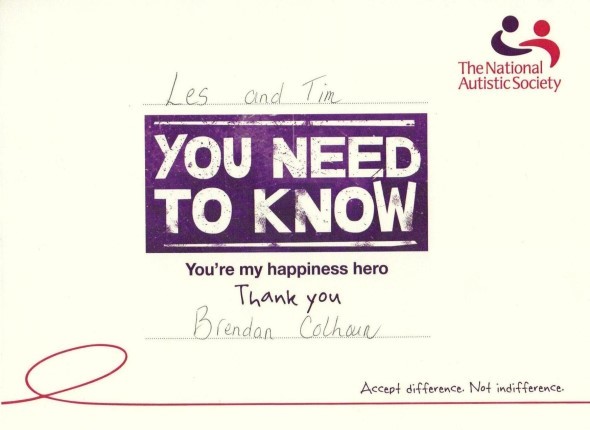 The National
Autistic Society
Les and Tim
YOU NEED
TO KNOW
You're my happiness hero
Thank you
Brendan Colhoun
Accept difference. Not indifference.